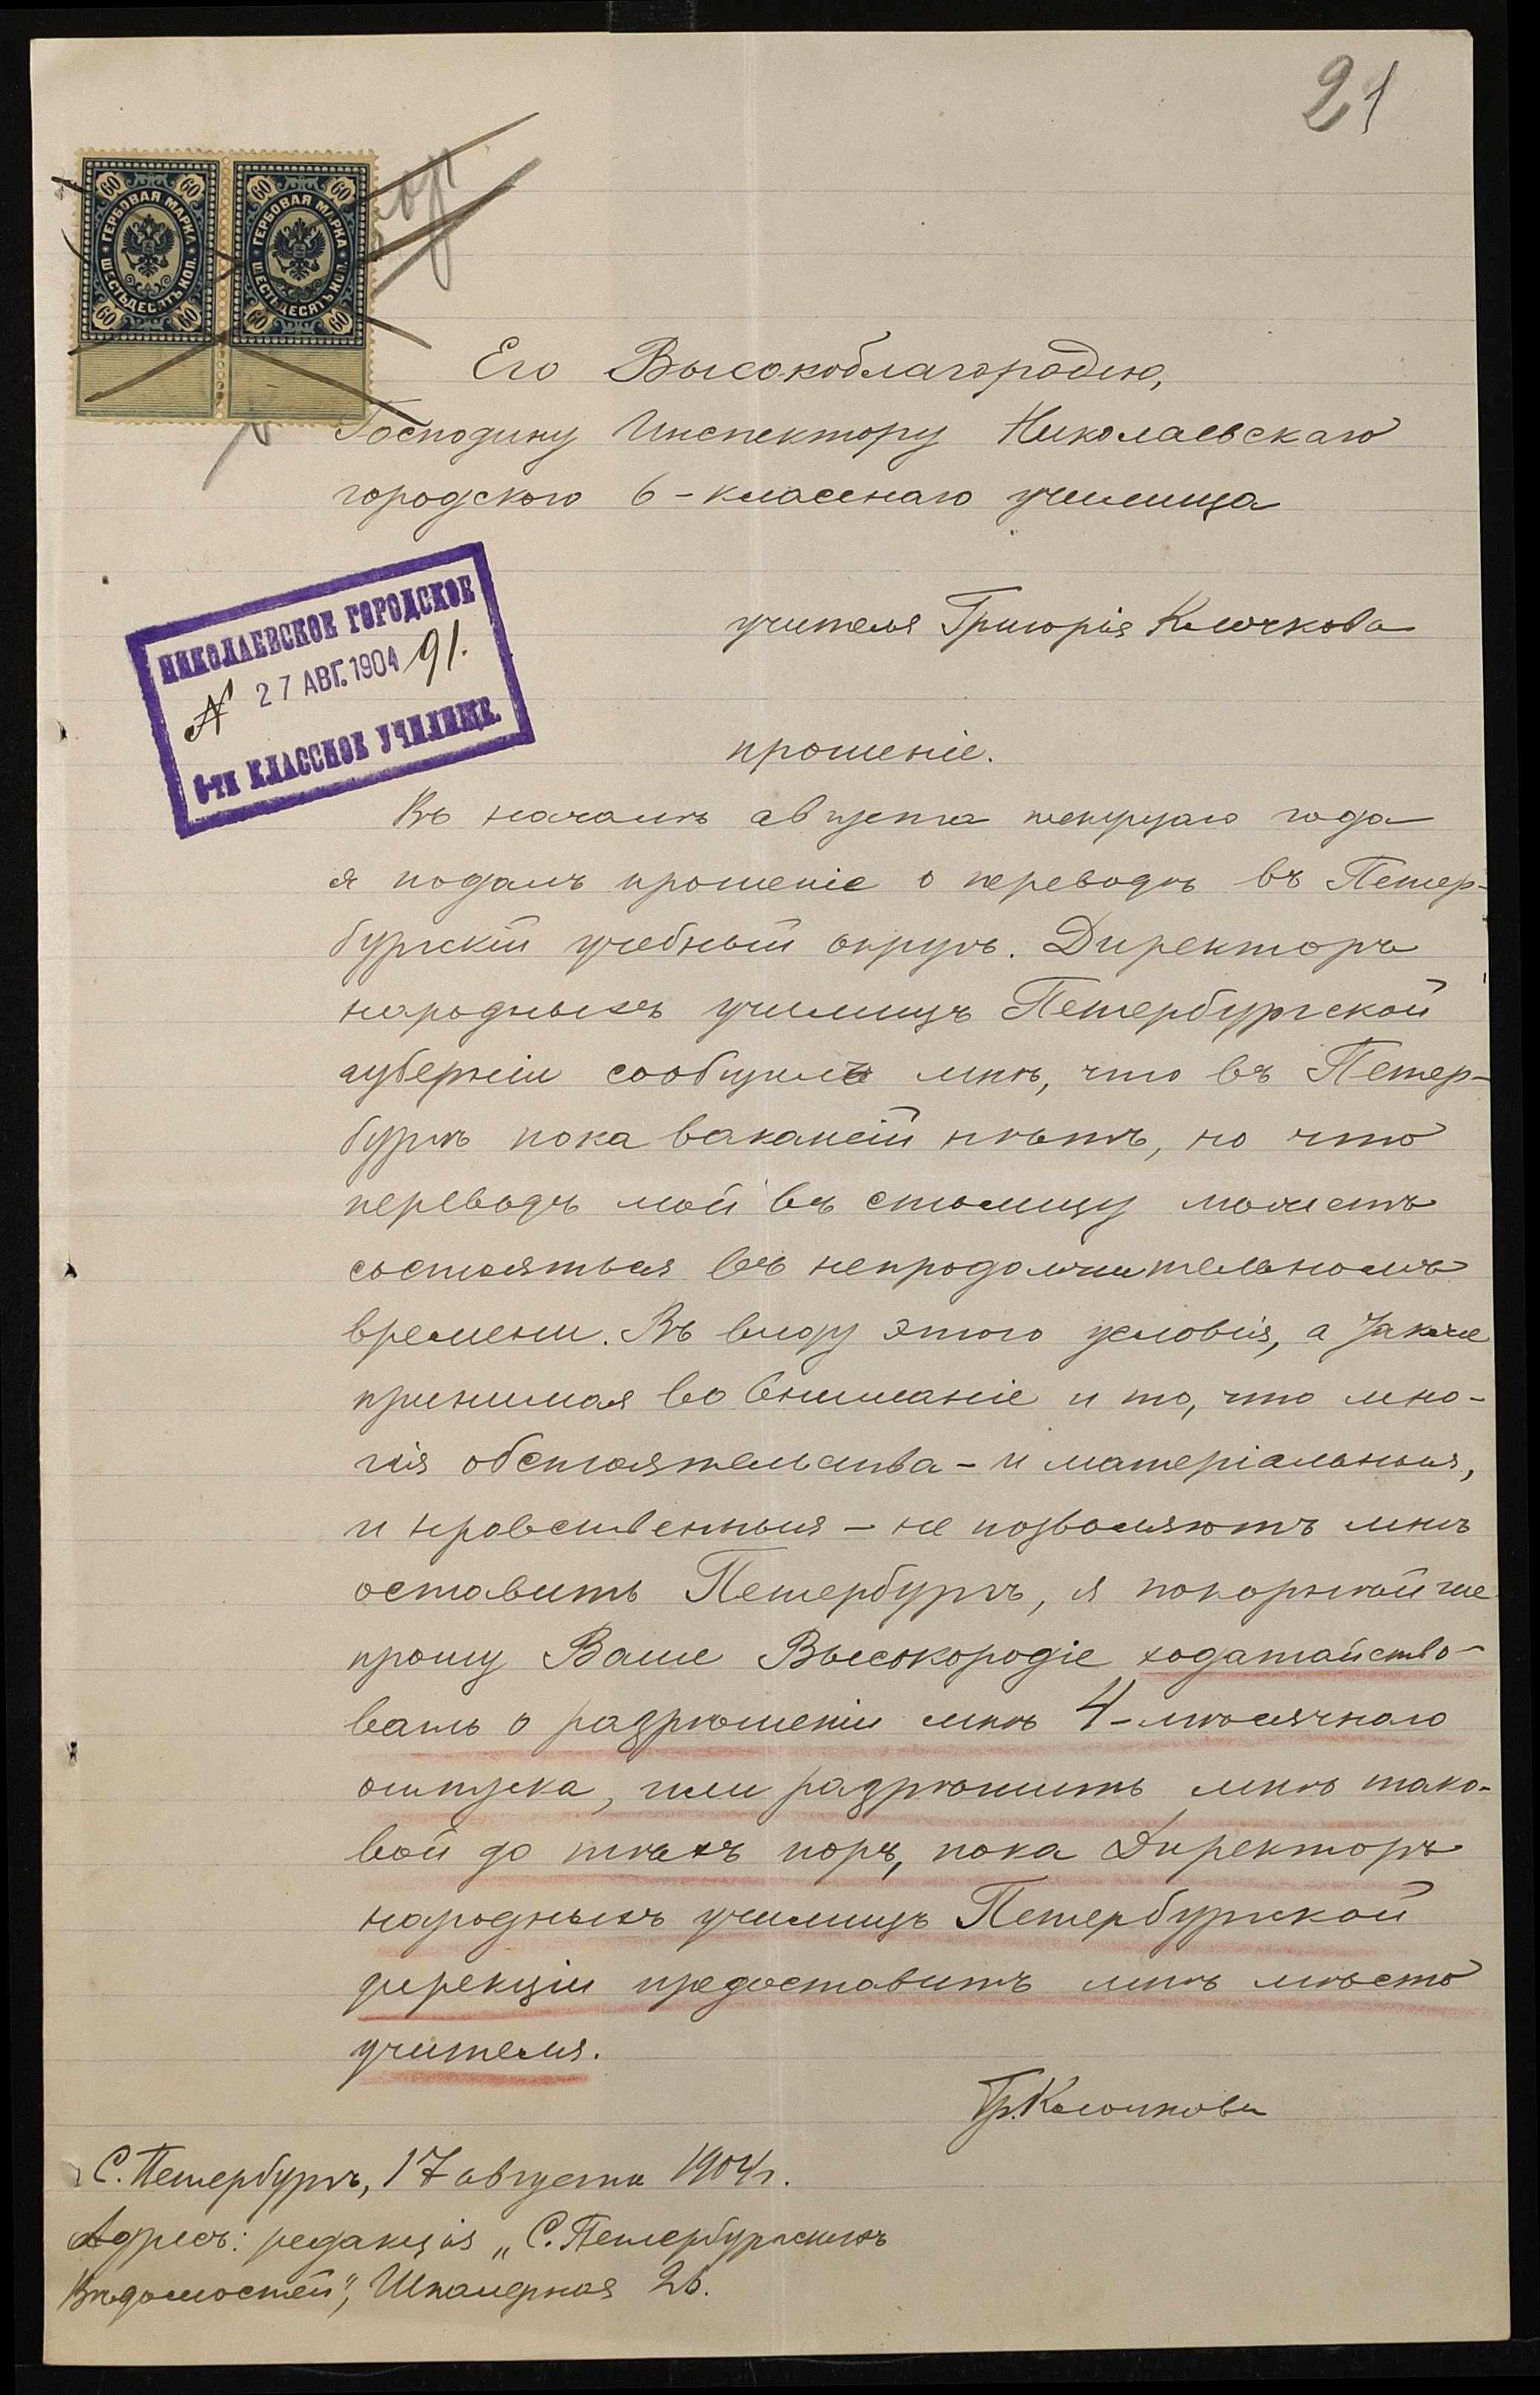 21
60 60 60 60
ГЕРБОВАЯ МАРКА
ШЕСТЬДЕСЯТЪ КОП.
60 60 60 60
ГЕРБОВАЯ МАРКА
ШЕСТЬДЕСЯТЪ КОП.
Его Высокоблагородію,
Господину Инспектору Николаевскаго
городского 6-класснаго училища
НИКОЛАЕВСКОЕ ГОРОДСКОЕ
№ 27 АВГ. 1904 91.
6-ТИ КЛАССНОЕ УЧИЛИЩЕ.
учителя Григорія Клочкова
прошеніе.
Въ началѣ августа текущаго года
я подалъ прошеніе о переводѣ въ Петер-
бургскій учебный округъ. Директоръ
народныхъ училищъ Петербургской
губерніи сообщилъ мнѣ, что въ Петер-
бургѣ пока вакансій нѣтъ, но что
переводъ мой въ столицу можетъ
состояться въ непродолжительномъ
времени. Въ виду этого условія, а также
принимая во вниманіе и то, что мно-
гія обстоятельства - и матеріальныя,
и нравственныя - не позволяютъ мнѣ
оставить Петербургъ, я покорнѣйше
прошу Ваше Высокородіе ходатайство-
вать о разрѣшеніи мнѣ 4-мѣсячнаго
отпуска, или разрѣшить мнѣ тако-
вой до тѣхъ поръ, пока Директоръ
народныхъ училищъ Петербургской
дирекціи предоставитъ мнѣ мѣсто
учителя.
Гр. Клочковъ
С. Петербургъ, 17 августа 1904 г.
Адресъ: редакція „С. Петербургскихъ
Вѣдомостей", Шпалерная 26.